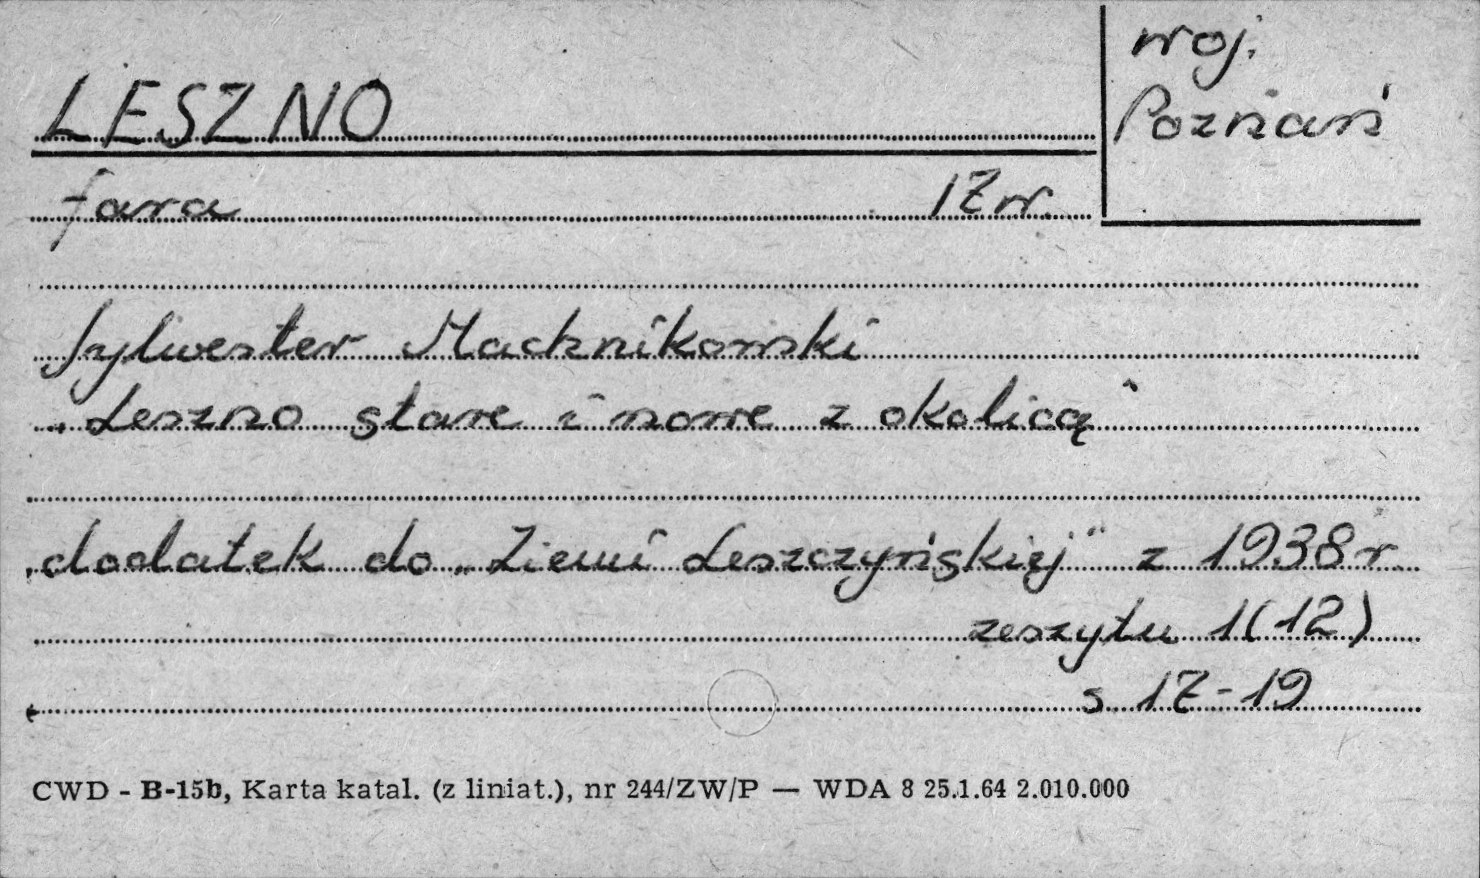 woj.
Poznań
LESZNO
fara 17 w.
Sylwester Machnikowski
„Leszno stare i nowe z okolicą"
dodatek do „Ziemi Leszczyńskiej" z 1938 r.
zeszytu 1(12)
s. 17-19
CWD - B-15b, Karta katal. (z liniat.), nr 244/ZW/P — WDA 8 25.1.64 2.010.000